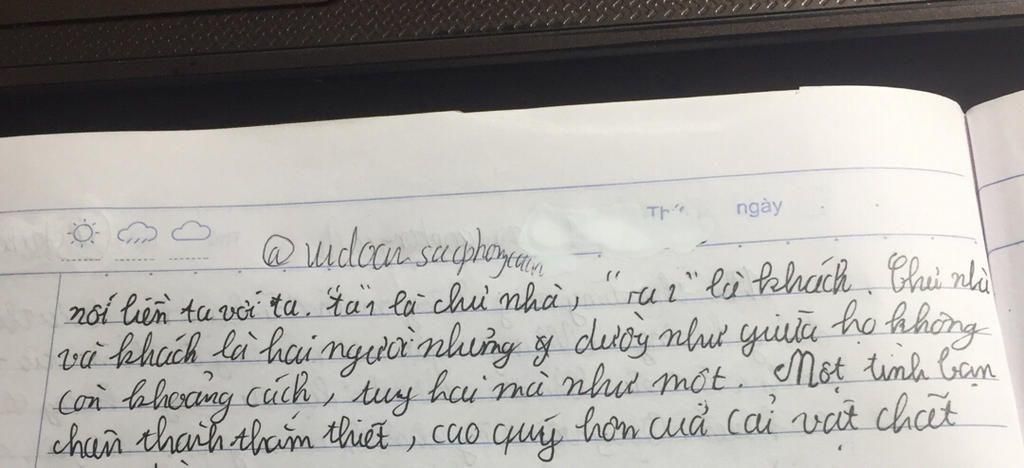 Thứ ngày
nối liền ta với ta. "ta" là chủ nhà, là khách. Chủ nhà
và khách là hai người nhưng dường như giữa họ không
còn khoảng cách, tuy hai mà như một. Một tình bạn
chân thành thắm thiết, cao quý hơn cuả cải vật chất